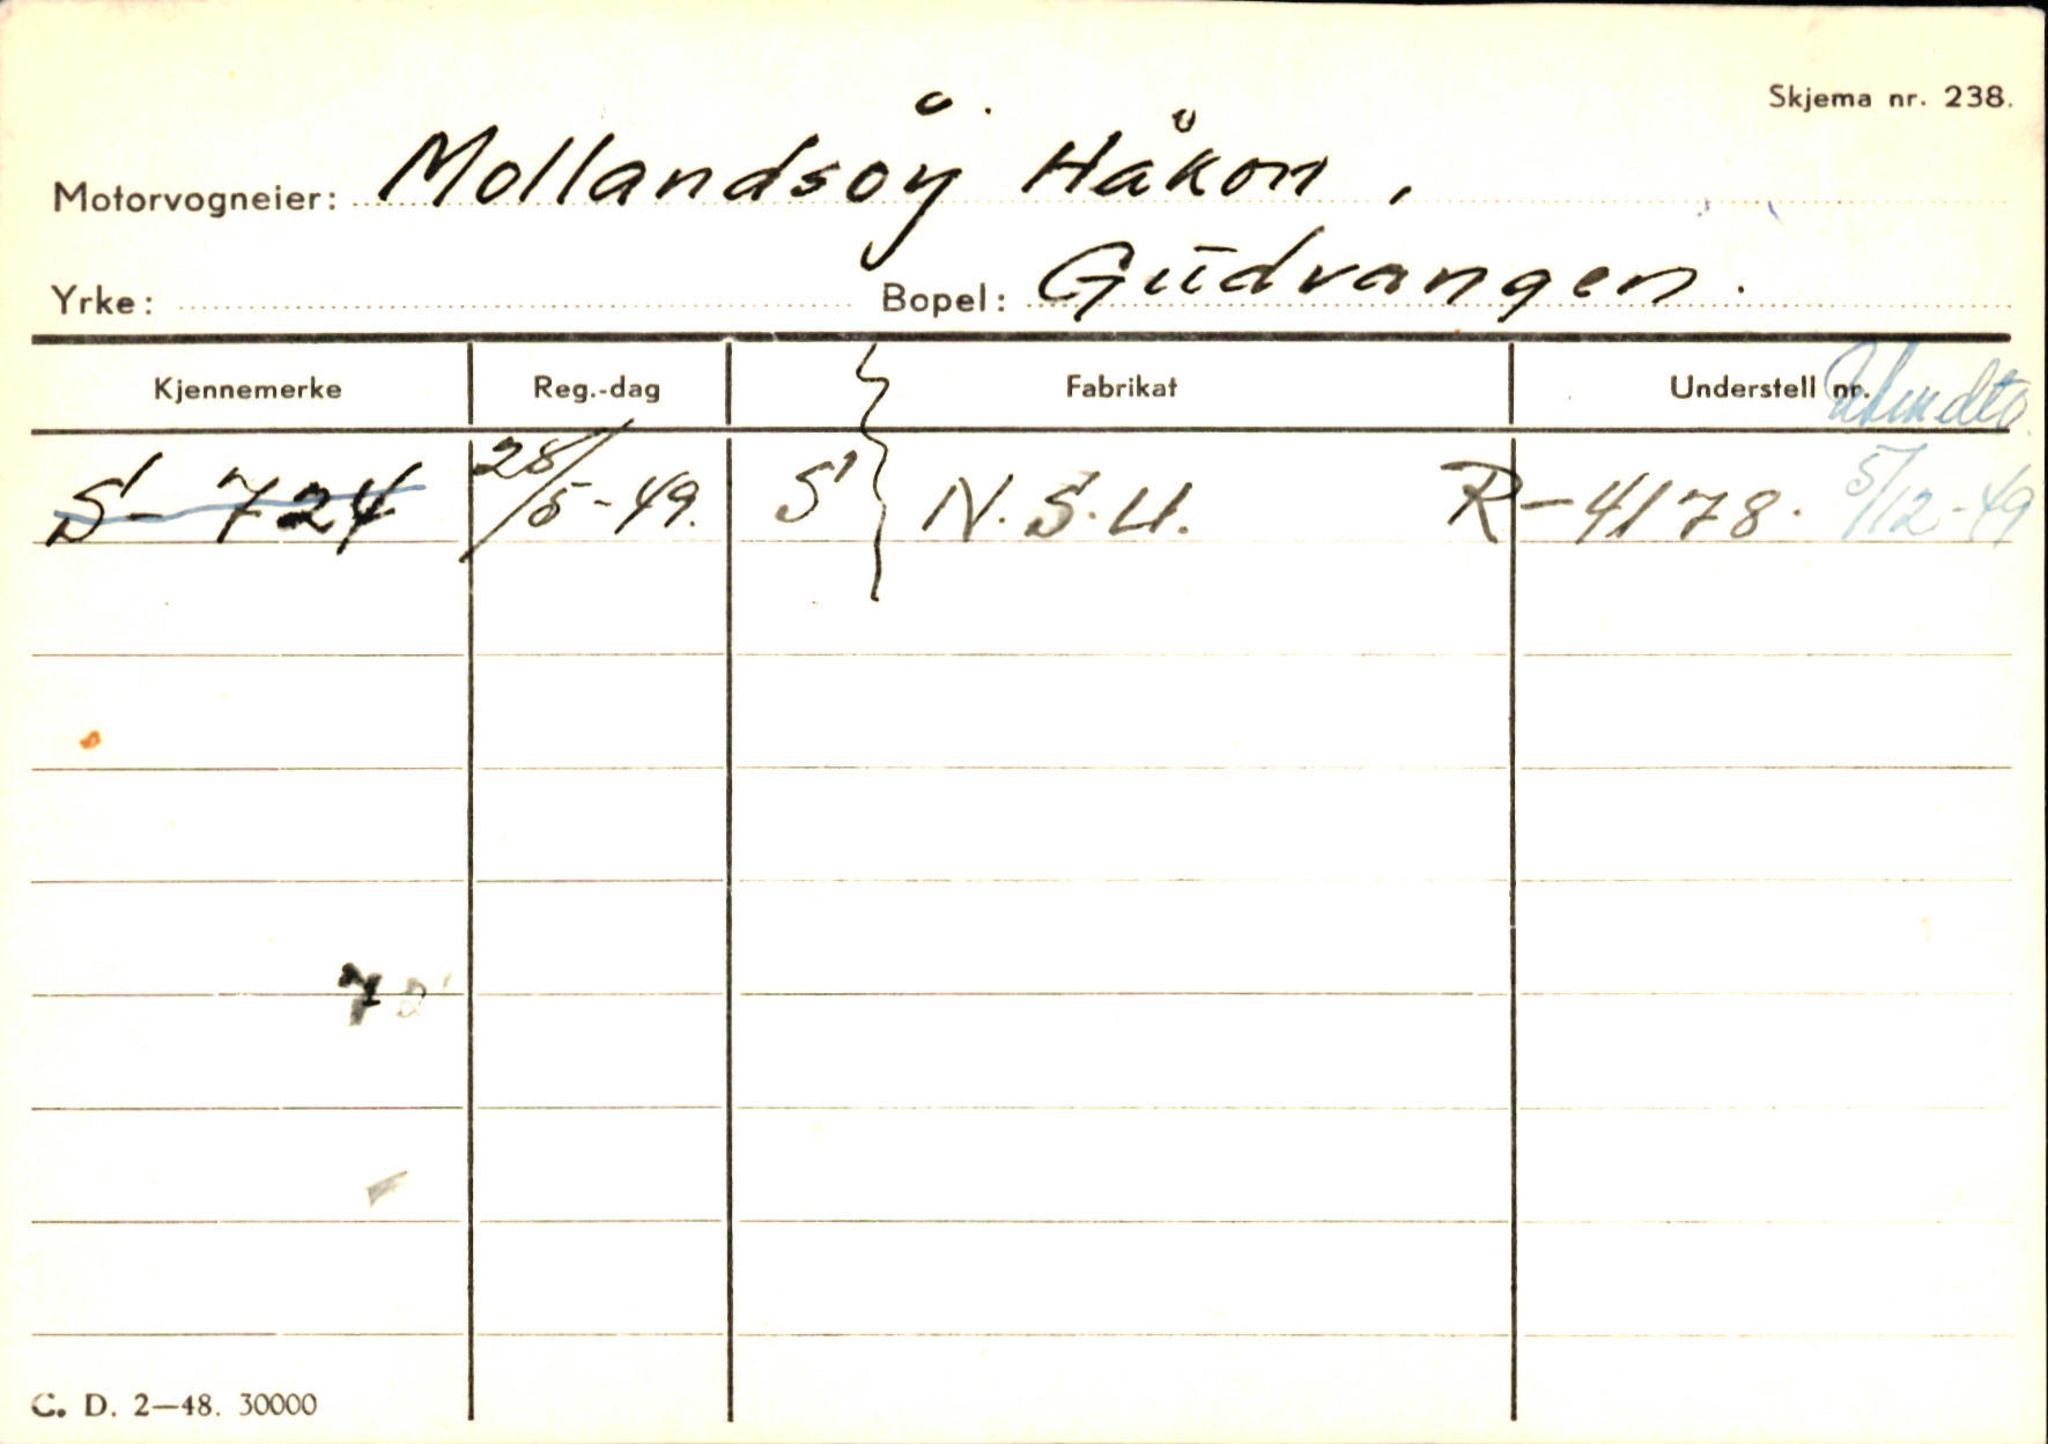 Skjema nr. 238.
Motorvogneier: Mollandsøy Håkon,
Yrke: Bopel: Gudvangen.
Kjennemerke Reg.-dag Fabrikat Understell nr.
S-724 28/5-49. S N.S.U. R-4178. 5/12-49
7
C. D. 2—48. 30000